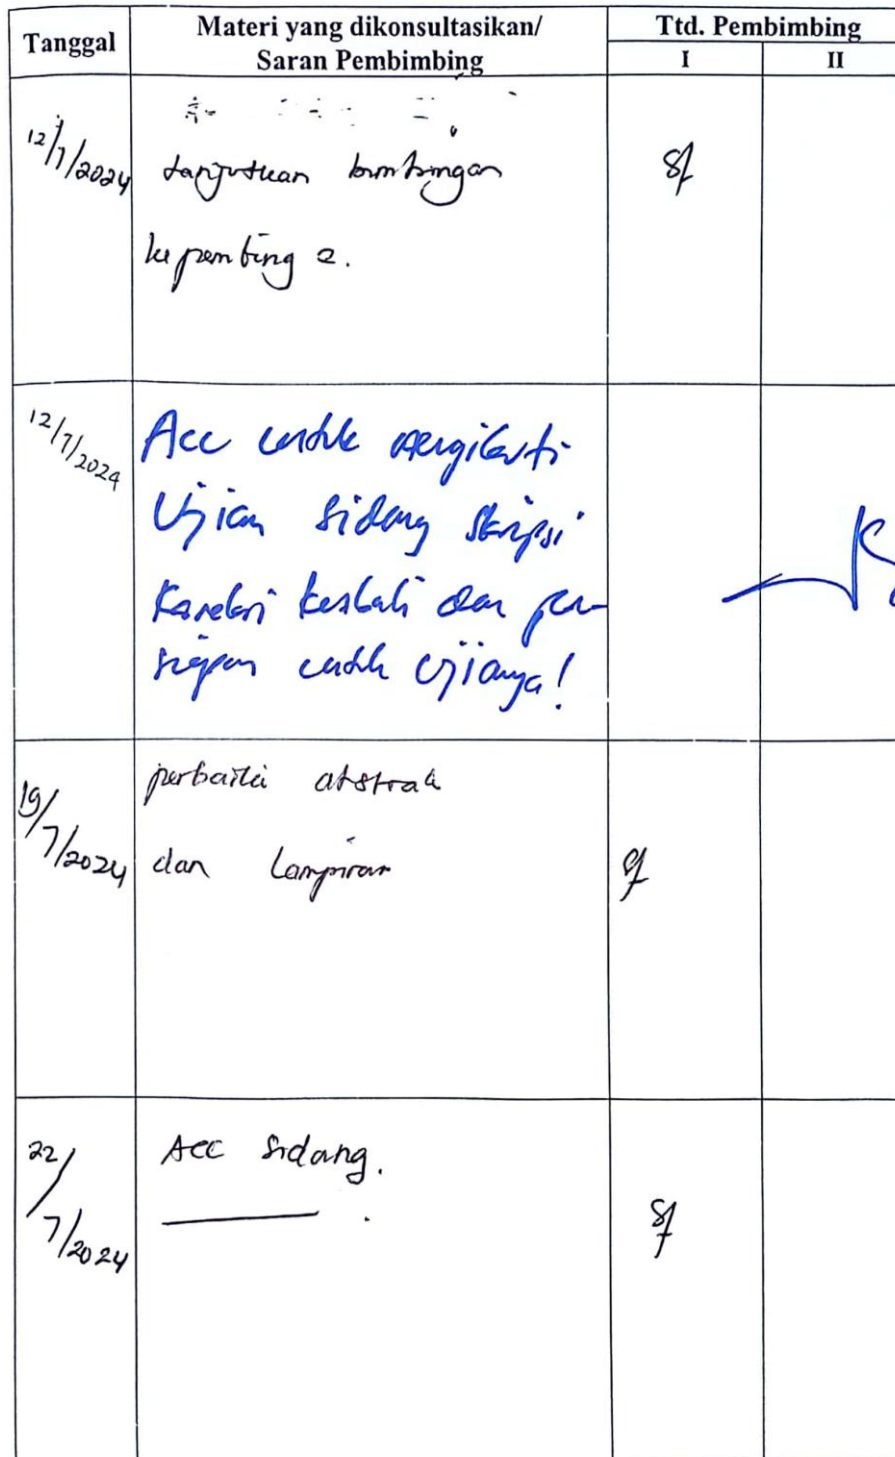 Tanggal
Materi yang dikonsultasikan/
Saran Pembimbing
Ttd. Pembimbing
I
II
12/7/2024
Lanjutkan bimbingan
ke pembing 2.
12/7/2024
Acc untuk mengikuti
Ujian sidang skripsi
kembali dan per
siapan untuk ujianya!
19/7/2024
perbaiki abstrak
dan Lampiran
22/7/2024
Acc sidang.